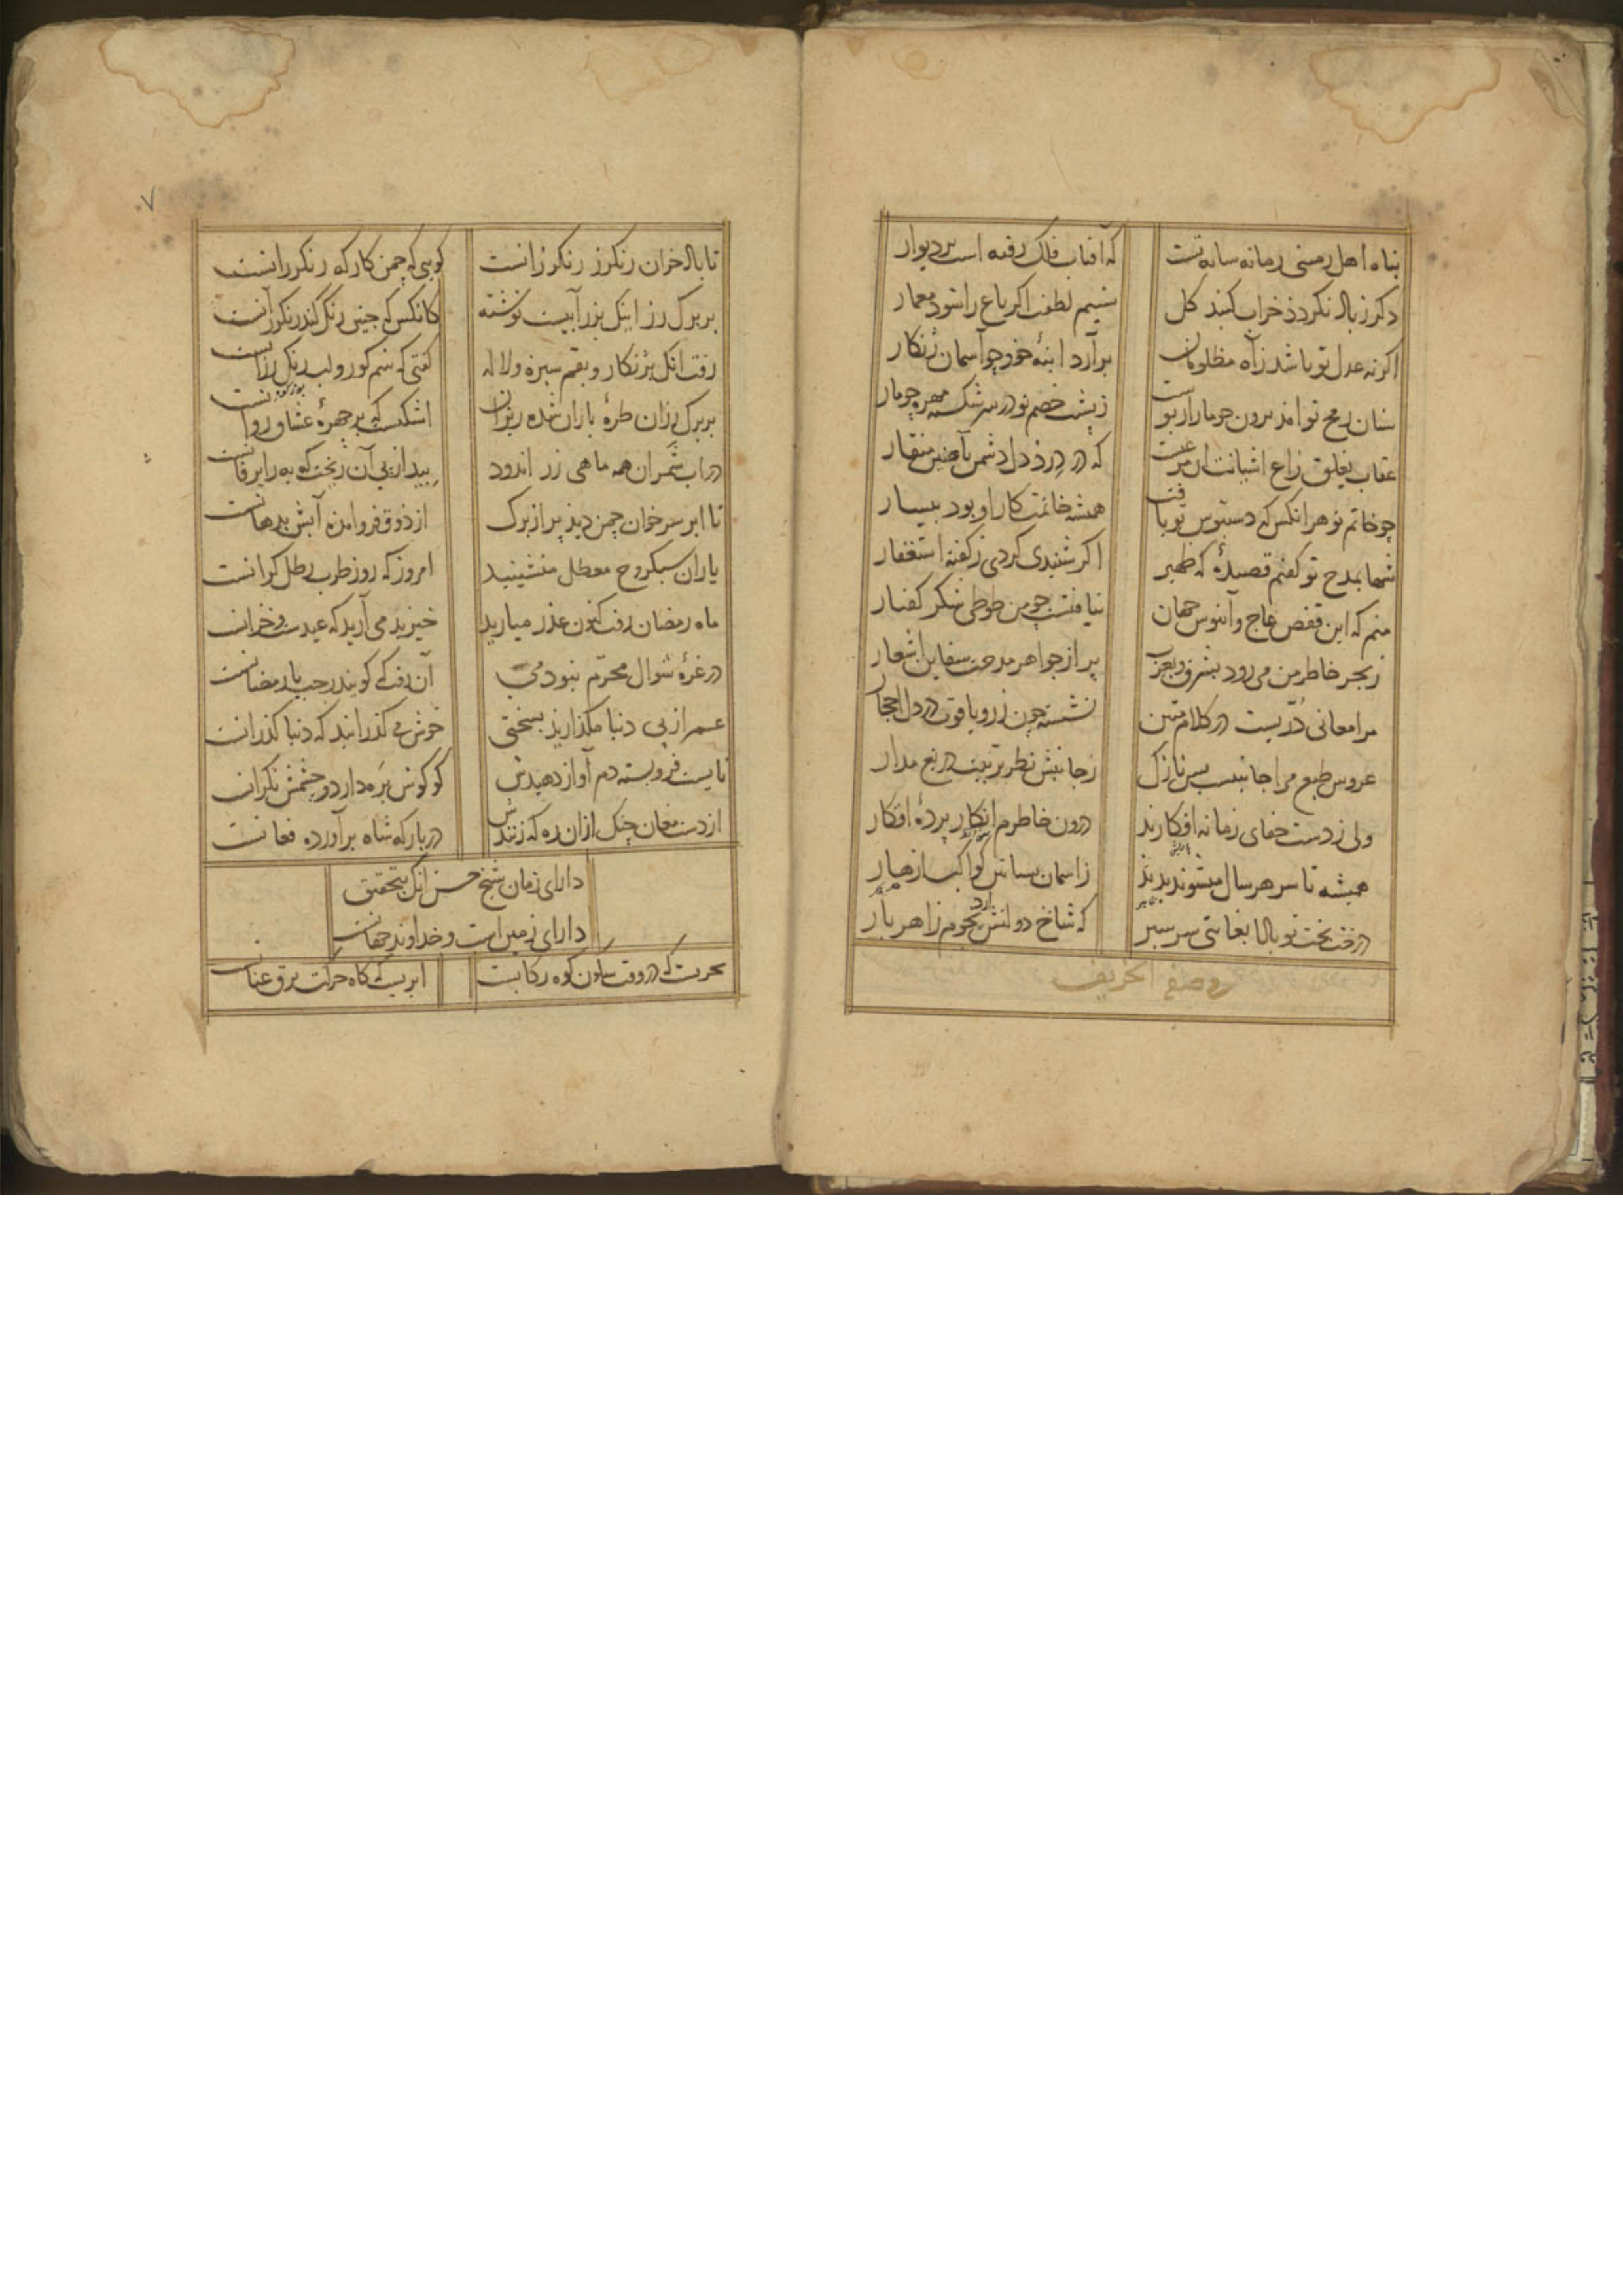 پناه اهل زمینی زمانه سایه تست
که آفتاب فلک رفته است بر دیوار
دکر ز باد نکردذ خراب کنبد کل
نسیم لطفت اکر باغ را شود معمار
اکر نه عدل تو باشد ز آه مظلومان
برآرد آینهٔ خور چو آسمان زنکار
سنان رمح تو آمد برون چو مار از پوست
ز پشت خصم تو در سر شکسته مهره چو مار
عقاب
زاغ آشیانت
که در درذ دل دشمن بآهنین منقار
چو خاتم تو هر آنکس که دستبوس تو یافت
همیشه خاتمت کار او بود بیسار
شها بمدح تو کفتم قصیدهٔ که ظهیر
اکر شنیدی کردی ز کفته استغفار
منم که این قفص عاج و آبنوس جهان
نیافتست چو من طوطی شکر کفتار
ز بحر خاطر من می رود بشرق و بغرب
پر از جواهر مدحت سفاین اشعار
مرا معانی دریست در کلام متین
نشسته چون زر و یاقوت در دل احجار
عروس طبع مرا جانبیست بس نازک
ز جانبش نظر تربیت دریغ مدار
ولی ز دست جفای زمانه افکارند
درون خاطرم ابکار پردهٔ افکار
همیشه تا سر هر سال میشوند پدید
ز آسمان بساتین کواکب ازهار
درخت بخت تو بادا بغایتی سرسبز
که شاخ دولتش آرد نجوم زاهر بار
فی وصف الخریف
۷
تا باد خزان رنکرز رنکرزانست
کویی که چمن کارکه رنکرزانست
بر برک رز اینک بزر آبیست نوشته
کانکس که چنین رنک کند رنکرز آنست
رفت آنک بزنکار و بقم سبزه و لاله
کفتی که سم کور و لب رنک رزانست
بر برک رزان طرهٔ باران شده ریزان
اشکیست که بر چهرهٔ عشاق روانست
در آب شمران همه ماهی زر اندود
بید از پی آن ریخت که به را یرقانست
تا ابر سر خوان چمن دیذ پر از برک
از ذوق فرو آمذه آبش بدهانست
یاران سبکروح معطل منشینید
امروز که روز طرب رطل کرانست
ماه رمضان رفت کنون عذر میارید
خیزید می آرید که عیدست و خزانست
در غرهٔ شوال محرم نبود می
آن رفت که کویند رجب یا رمضانست
عمر از پی دنیا مکذارید بسختی
خوش می کذرانید که دنیا کذرانست
نایست فرو بسته دم آواز دهیدش
کو کوش بره دارد و چشمش نکرانست
از دست مغان چنک ازان ره که زنندش
در بارکه شاه برآورده فغانست
دارای زمان شیخ حسن آنک بتحقیق
دارای زمین است و خداوند جهانست
بحریست که در وقت سکون کوه رکابست
ابریست که کاه حرکت برق عنانست